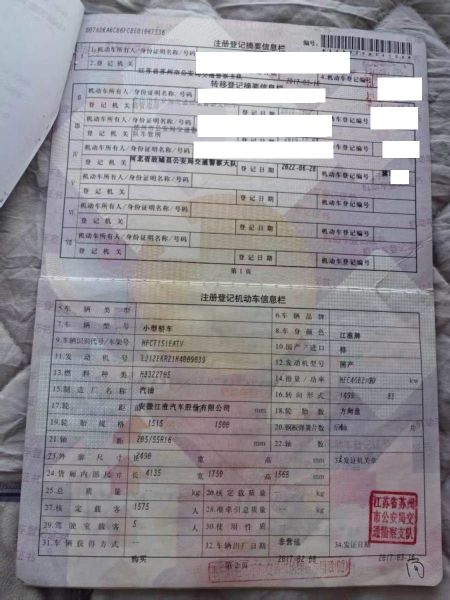 注册登记摘要信息栏
编号:
I 1.机动车所有人/身份证明名称/号码
2.登记机关 江苏省苏州市公安局交通警察支队 2017-03-16 4.机动车登记编号
转移登记摘要信息栏
II 机动车所有人/身份证明名称/号码
登记机关 登记日期 机动车登记编号
III 机动车所有人/身份证明名称/号码
登记机关 登记日期 机动车登记编号
IV 机动车所有人/身份证明名称/号码
登记机关 河北省故城县公安局交通警察大队 登记日期 2022-06-28 机动车登记编号
V 机动车所有人/身份证明名称/号码
登记机关 登记日期 机动车登记编号
VI 机动车所有人/身份证明名称/号码
登记机关 登记日期 机动车登记编号
VII 机动车所有人/身份证明名称/号码
登记机关 登记日期 机动车登记编号
第1页
注册登记机动车信息栏
5.车辆类型 6.车辆品牌
7.车辆型号 小型轿车 8.车身颜色 江淮牌
9.车辆识别代号/车架号 HFC7151EATV 10.国产/进口 棕
11.发动机号 12.发动机型号 国产
13.燃料种类 14.排量/功率
15.制造厂名称 汽油 16.转向形式 1499 83
17.轮距 安徽江淮汽车股份有限公司 mm 18.轮胎数 方向盘
19.轮胎规格 1515 1500 20.钢板弹簧片数
21.轴距 205/55R16 mm 22.轴数
23.外廓尺寸 长 2490 宽 高 mm 33.发证机关章
24.货厢内部尺寸 长 4135 宽 1750 高 1568 mm
25.总质量 -- kg 26.核定载质量 -- kg
27.核定载客 1575 人 28.准牵引总质量 -- kg
29.驾驶室载客 5 人 30.使用性质
31.车辆获得方式 -- 32.车辆出厂日期 非营运 34.发证日期
购买 第2页 2017-02-08 2017-03-16
江苏省苏州
市公安局交
通警察支队